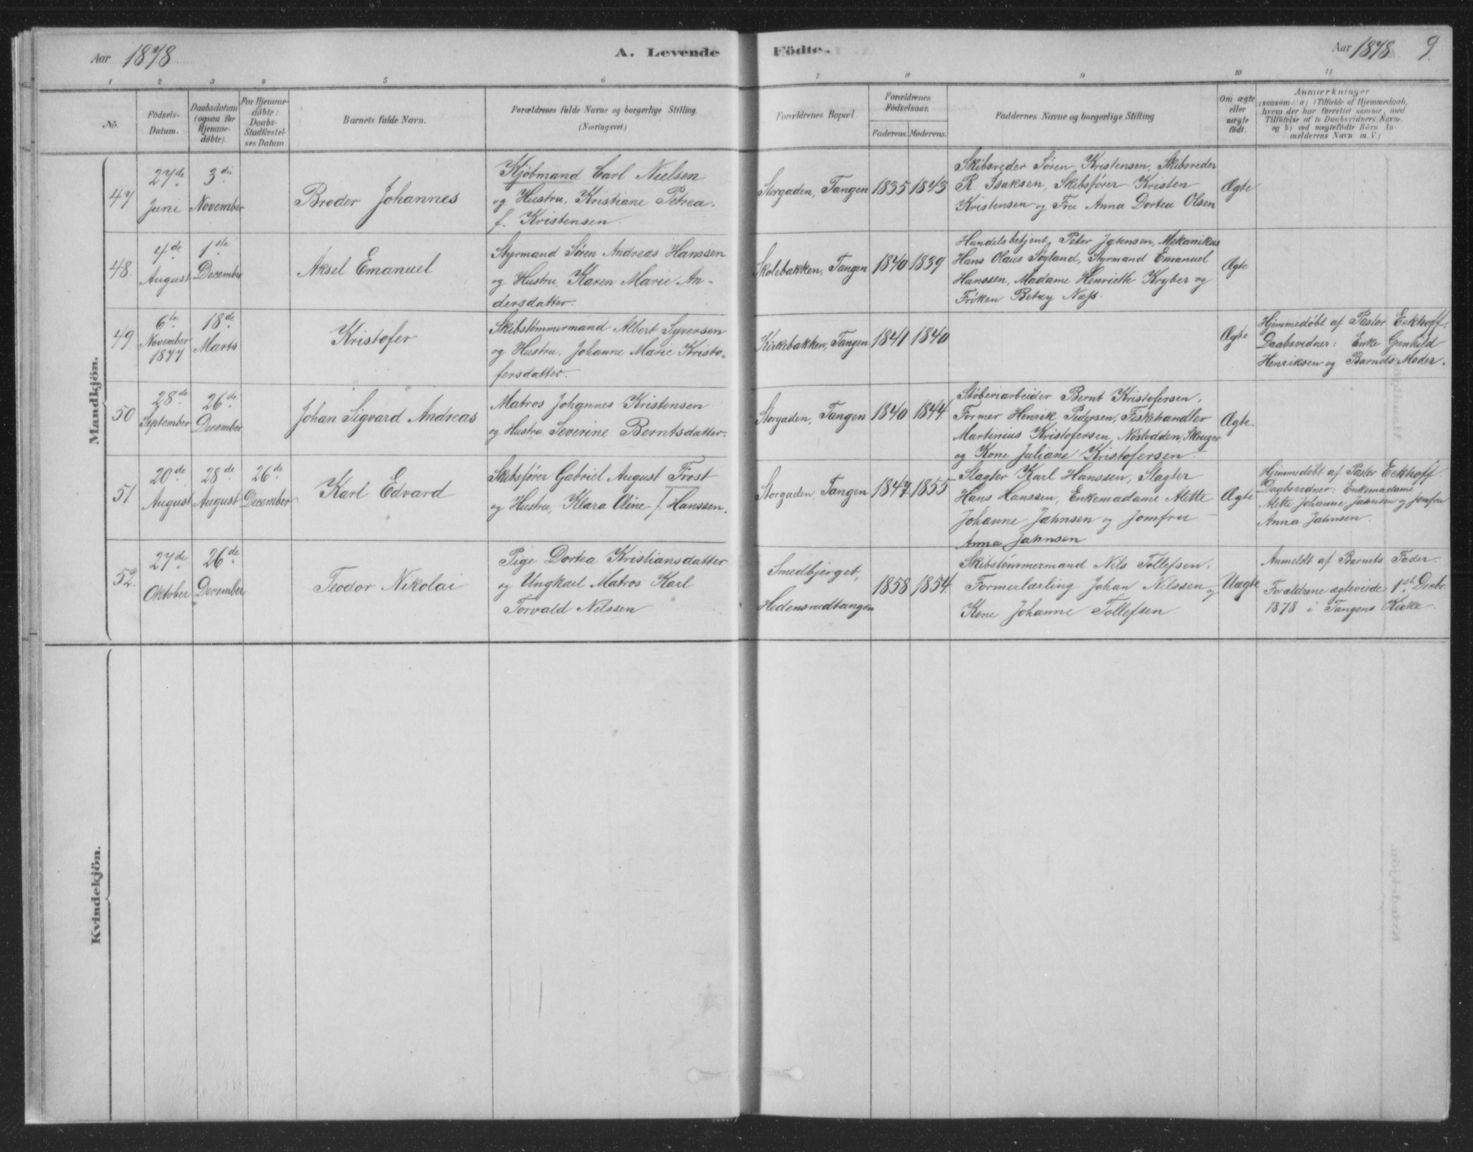 Aar 1878 A. Levende Födte. Aar 1878 9
1 2 3 4 5 6 7 8 9 10 11
No. Födsels-Datum. Daabsdatum (ogsaa for Hjemmedöbte). For Hjemmedöbte: Daabs-Stadfæstelses Datum Barnets fulde Navn. Forældrenes fulde Navne og borgerlige Stilling (Næringsvei) Forældrenes Bopæl Forældrenes Födselsaar. Faderens. Moderens. Faddernes Navne og borgerlige Stilling Om ægte eller uægte födt. Anmærkninger
(saasom: a) i Tilfælde af Hjemmedaab, hvem der har forrettet samme, med Tilföielse af to Daabsvidners Navne, og b) ved uægtefödte Börn Anmelderens Navn m. V.)
Mandkjön.
47 27de Juni 3die November Broder Johannes
Kjöbmand Carl Nielsen
og Hustru, Kristiane Petrea
f. Kristensen
Storgaden, Tangen 1835 1843
Skibsreder Søren Kristensen, Skibsreder
R Isaksen, Skibsfører Kristen
Kristensen og Fru Anna Dortea Olsen
Ægte
48 4de August 1ste December Aksel Emanuel
Styrmand Søren Andreas Hanssen
og Hustru, Karen Marie An-
dersdatter.
Skolebakken, Tangen 1840 1839
Handelsbetjent, Peter Jahnsen, Mekanikus
Hans Olaus Søyland, Styrmand Emanuel
Hanssen, Madame Henriette Kryber og
Frøken Betzy Næss.
Ægte
49 6te November 1877 18de Marts Kristofer
Skibstømmermand Albert Syversen
og Hustru, Johanne Marie Kristo-
fersdatter.
Kirkebakken, Tangen 1841 1840
Ægte
Hjemmedøbt af Pastor Eckhoff,
Daabsvidner: Enke Gunhild
Henriksen og Barnets Moder.
50 28de September 26de December Johan Sigvard Andreas
Matros Johannes Kristensen
og Hustru Severine Berntsdatter.
Storgaden, Tangen 1840 1844
Støberiarbeider Bernt Kristofersen,
Former Henrik Pedersen, Fiskehandler
Martinius Kristofersen, Nøstodden, Skouger
og Kone Juliane Kristofersen.
Ægte.
51 20de August 28de August 26de December Karl Edvard
Skibsfører Gabriel August Frost
og Hustru, Klara Oline f. Hanssen.
Storgaden, Tangen 1847 1855
Slagter Karl Hanssen, Slagter
Hans Hanssen, Enkemadame Alette
Johanne Jahnsen og Jomfru
Anna Jahnsen
Ægte
Hjemmedøbt af Pastor Eckhoff
Daabsvidner: Enkemadame
Alette Johanne Jahnsen og Jomfru
Anna Jahnsen.
52. 27de Oktober 26de December Teodor Nikolai
Pige Dortea Kristiansdatter
og Ungkarl Matros Karl
Torvald Nilssen
Smedbjerget,
Hedensrudtangen
1858 1854.
Skibstømmermand Nils Tollefsen,
Formerlærling Johan Nilssen og
Kone Johanne Tollefsen
Uægte
Anmeldt af Barnets Fader.
Forældrene ægteviede 1ste Decbr.
1878 i Tangens Kirke.
Kvindekjön.